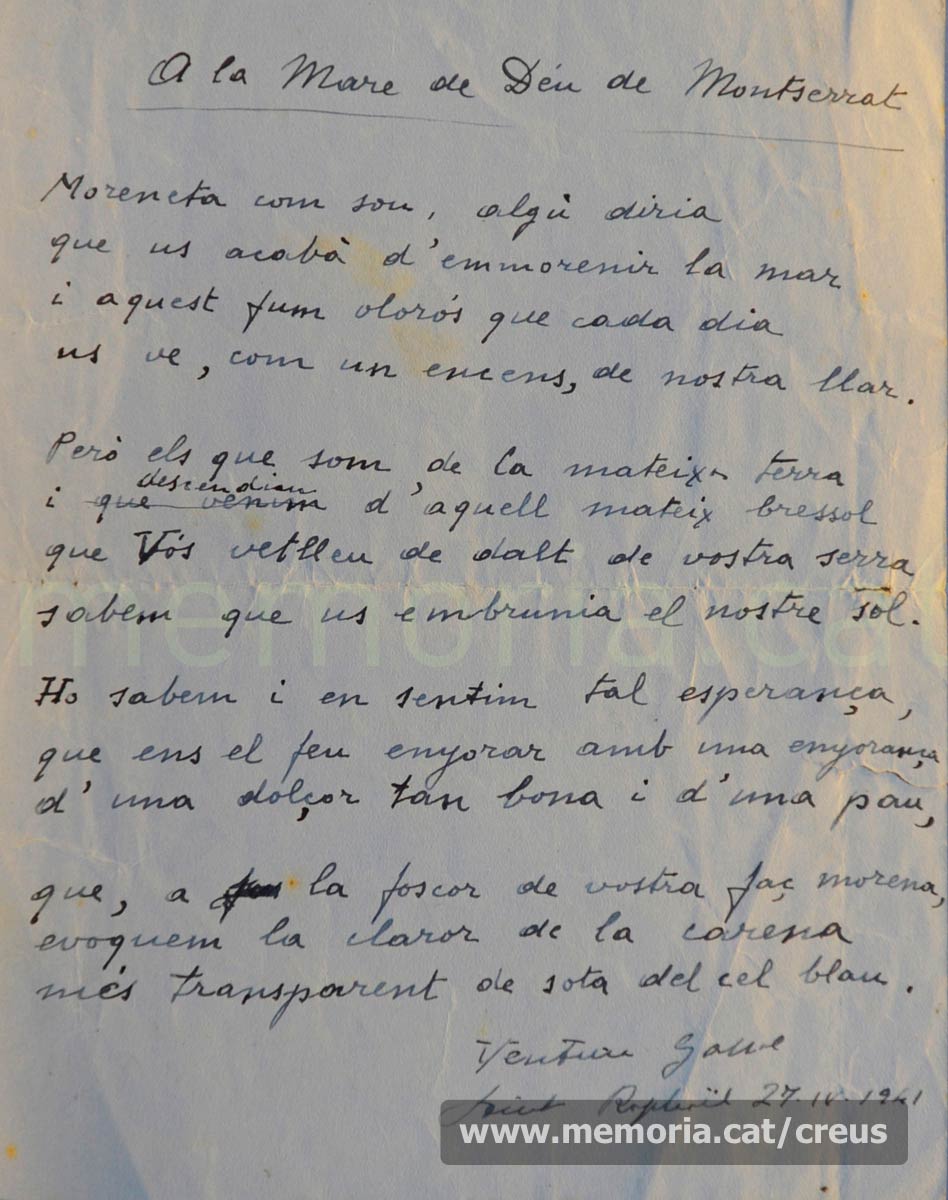 A la Mare de Déu de Montserrat
Moreneta com sou, algù diria
que us acabà d'emmorenir la mar
i aquest fum olorós que cada dia
us ve, com un encens, de nostra llar.
Però els que som de la mateixa terra
descendim
i que venim d'aquell mateix bressol
que Vós vetlleu de dalt de vostra serra
sabem que us embrunia el nostre sol.
Ho sabem i en sentim tal esperança,
que ens el feu enyorar amb una enyorança
d'una dolçor tan bona i d'una pau,
que, a la foscor de vostra faç morena,
evoquem la claror de la carena
més transparent de sota del cel blau.
Ventura Gassol
Saint Raphaël 27-IV-1941
memoria.cat
www.memoria.cat/creus